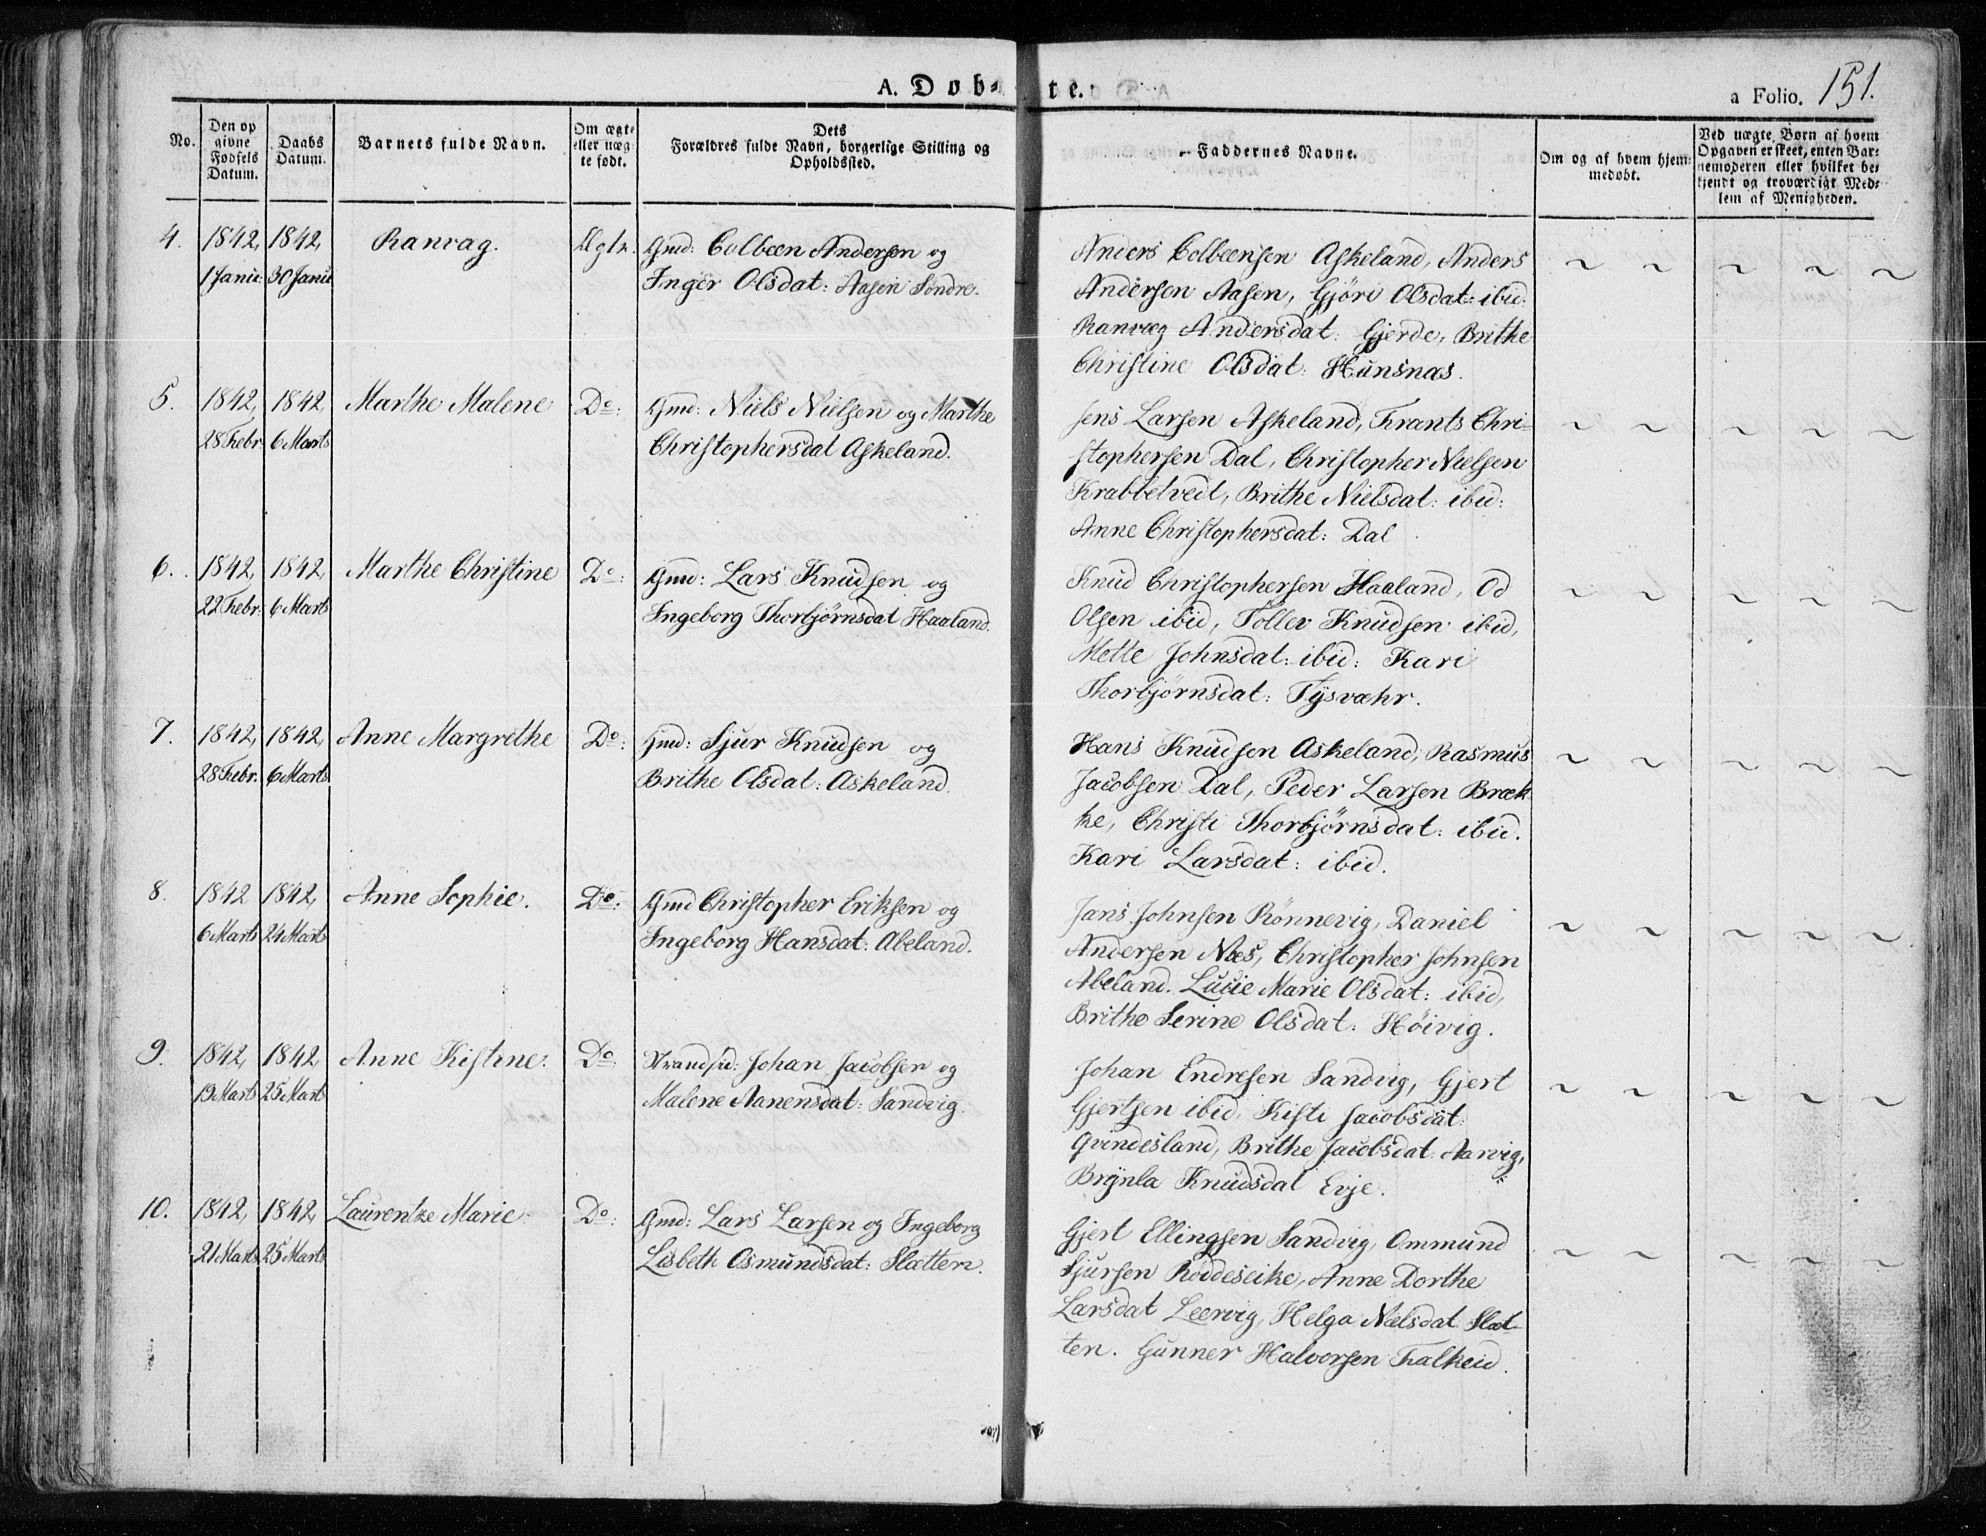 A. Døb- te.
a Folio. 151.
No.
Den op
givne
Fødsels
Datum.
Daabs
Datum.
Barnets fulde Navn.
Om ægte
eller uæg-
te født.
Dets
Forældres fulde Navn, borgerlige Stilling og
Opholdssted.
Faddernes Navne.
Om og af hvem hjem-
medøbt.
Ved uægte Børn af hvem
Opgaven er skeet, enten Bar-
nemoderen eller hvilket be-
kjendt og troværdigt Med-
lem af Menigheden.
4. 1842, 1842, Ranvag. Ægte. Gmd: Colbeen Andersen og
1 Janu: 30 Janu: Inger Olsdat: Aasen Søndre.
Anders Colbeensen Askeland, Anders
Andersen Aasen, Gjøri Olsdat: ibid:
Ranvæg Andersdat: Gjerde, Brithe
Christine Olsdat: Hunsnæs.
5. 1842, 1842, Marthe Malene Do: Gmd: Niels Nielsen og Marthe
28 Febr. 6 Marts Christophersdat Askeland.
Jens Larsen Askeland, Frants Chri-
stophersen Dal, Christopher Nielsen
Krabbetvedt, Brithe Nielsdat: ibid:
Anne Christophersdat: Dal.
6. 1842, 1842, Marthe Christine Do: Gmd: Lars Knudsen og
22 Febr. 6 Marts Ingeborg Thorbjørnsdat Haaland.
Knud Christophersen Haaland, Od
Olsen ibid, Tollev Knudsen ibid,
Mette Johnsdat: ibid: Kari
Thorbjørnsdat: Tysvæhr.
7. 1842, 1842, Anne Margrethe Do: Gmd: Sjur Knudsen og
28 Febr. 6 Marts Brithe Olsdat: Askeland.
Hans Knudsen Askeland, Rasmus
Jacobsen Dal, Peder Larsen Bræk-
ke, Christi Thorbjørnsdat: ibid.
Kari Larsdat: ibid.
8. 1842 1842, Anne Sophie. Do: Gmd Christopher Eriksen og
6 Marts 24 Marts Ingeborg Hansdat: Abeland.
Jans Johnsen Rønnevig, Daniel
Andersen Næs, Christopher Johnsen
Abeland. Lucie Marie Olsdat: ibid,
Brithe Serine Olsdat: Høivig.
9. 1842, 1842, Anne Kistine. Do: Strandsid: Johan Jacobsen og
19 Marts 25 Marts Malene Aanensdat: Sandvig.
Johan Endresen Sandvig, Gjert
Gjertsen ibid, Kisti Jacobsdat:
Qvindesland, Brithe Jacobsdat: Aarvig,
Brynla Knudsdat Evje.
10. 1842, 1842, Laurentze Marie. Do: Gmd: Lars Larsen og Ingeborg
21 Marts 25 Marts Lisbeth Osmundsdat: Slætten.
Gjert Ellingsen Sandvig, Ommund
Sjursen Røideseike, Anne Dorthe
Larsdat Leervig, Helga Nælsdat Slæt-
ten. Gunner Halvorsen Falkeid.